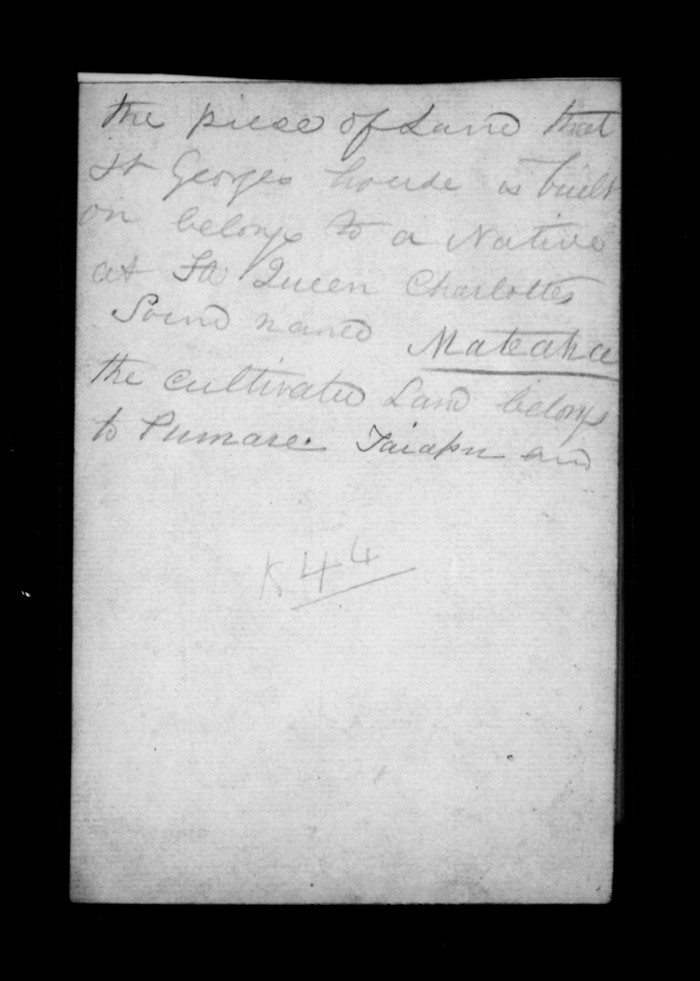 the piese of Land that
St Georges house is built
on belongs to a Native
at Queen Charlottes
Sound named Mataaha
the cultivated Land belongs
to Pumare. Taiapu and
K 44